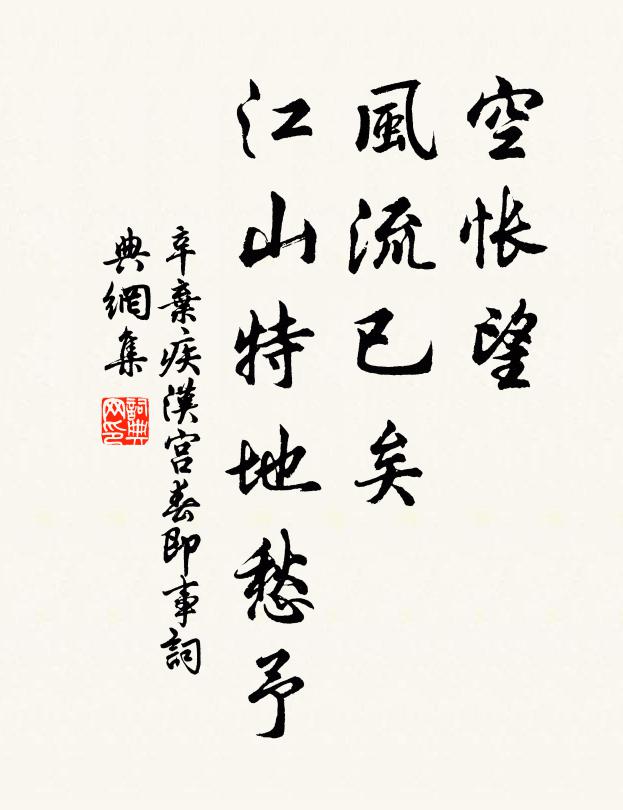 空怅望
風流已矣
江山特地愁予
辛棄疾漢宮春即事詞
典網集
詞典網印